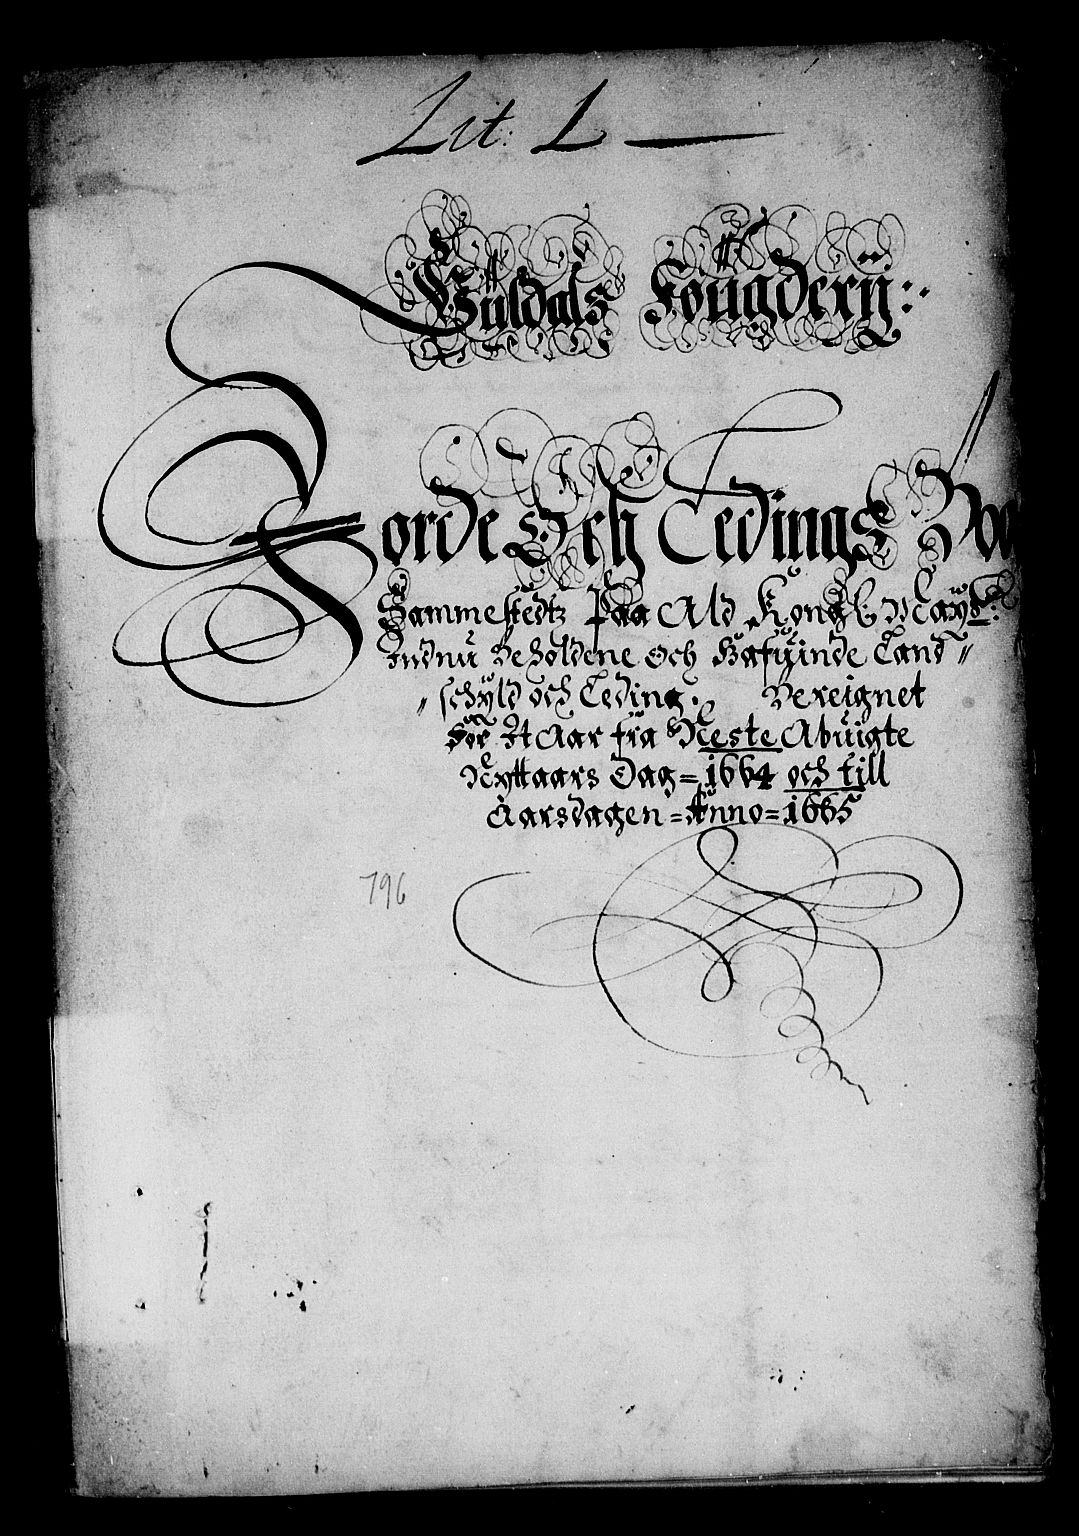 Lit: L —
Guldals Fougderij:
Jorde Och Tedings Boo
Sammestedtz Paa Ald Kongl: Mayds:
Indnu Beholdene Och Hafuinde Land〃
〃schyld och Teding. Bereignet
för Et Aar fra Neste Abuigte
Nyttaars Dag = 1664 och till
Aarsdagen = Anno = 1665
796